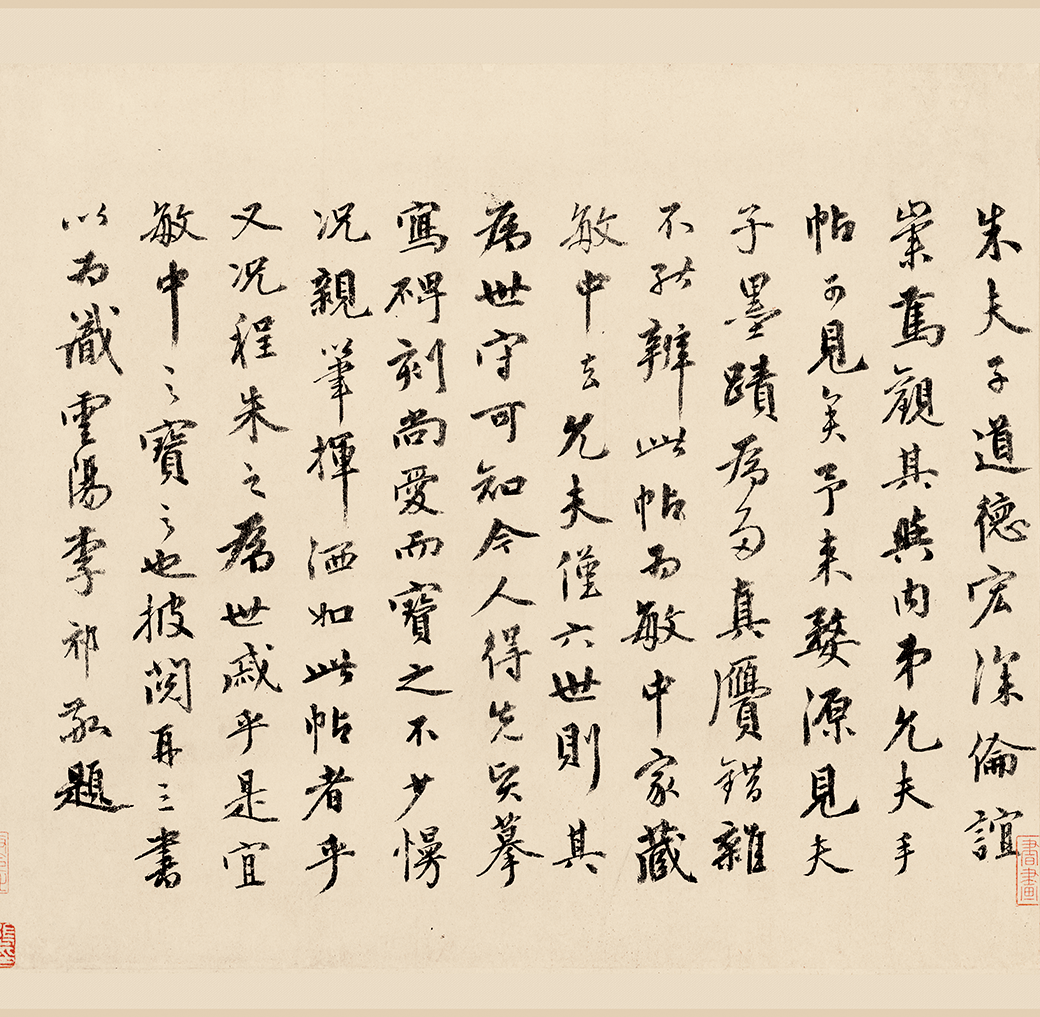 朱夫子道德宏深倫誼
崇篤觀其與内弟允夫手
帖可見矣予来婺源見夫
子墨蹟為多真贋錯雜
不能辨此帖为敏中家藏
敏中去允夫僅六世則其
為世守可知今人得先賢摹
寫碑刻尚愛而寳之不少慢
况親筆揮洒如此帖者乎
又况程朱之為世戚乎是宜
敏中之寳之也披閲再三書
以为識雲陽李祁敬題
書畫